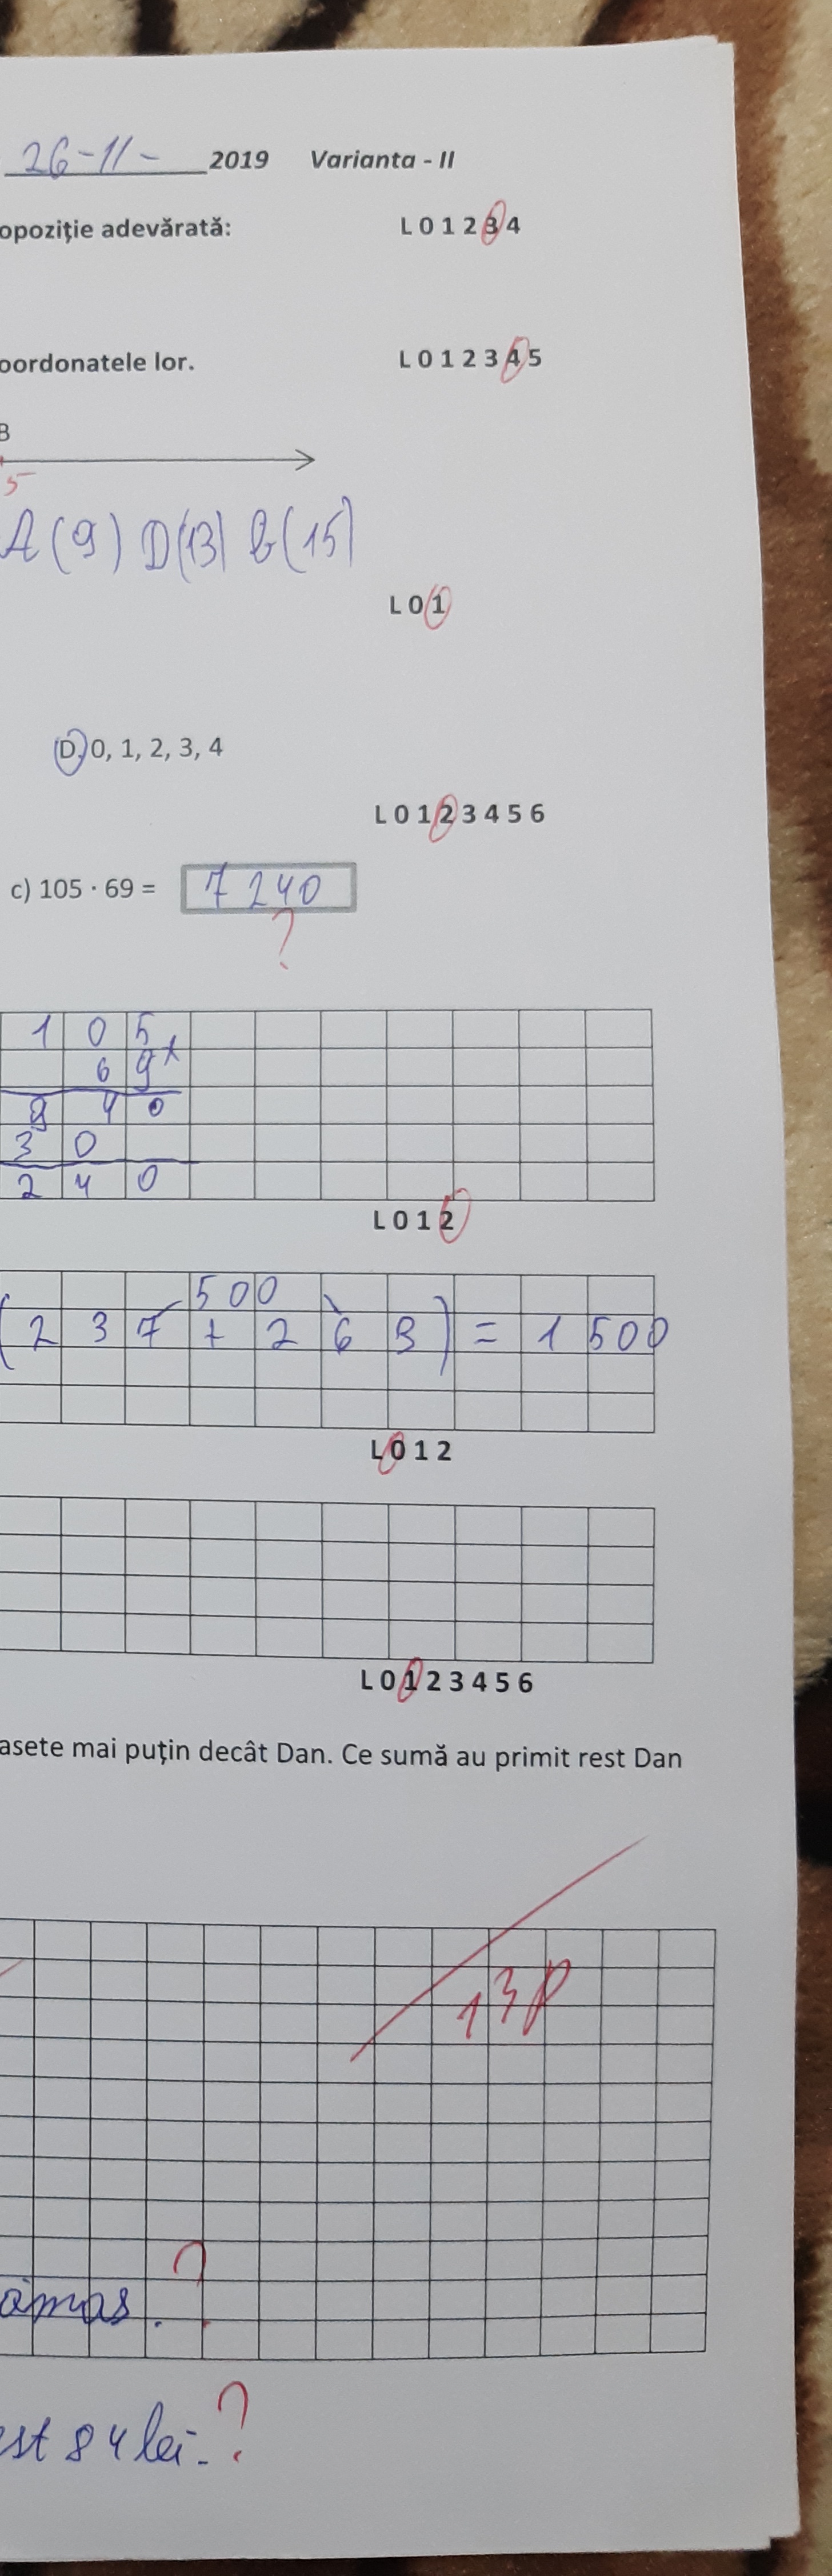 26-11- 2019 Varianta - II
opoziţie adevărată: L 0 1 2 3 4
oordonatele lor. L 0 1 2 3 4 5
B
5
A (9) D(13) B(15)
L 0 1
D. 0, 1, 2, 3, 4
L 0 1 2 3 4 5 6
c) 105 · 69 = 7240
?
1 0 5
6 9 x
8 4 0
3 0
2 4 0
L 0 1 2
500
(2 3 7 + 2 6 3) = 1 500
L 0 1 2
L 0 1 2 3 4 5 6
asete mai puţin decât Dan. Ce sumă au primit rest Dan
13p
?
amas.
est 84 lei. ?